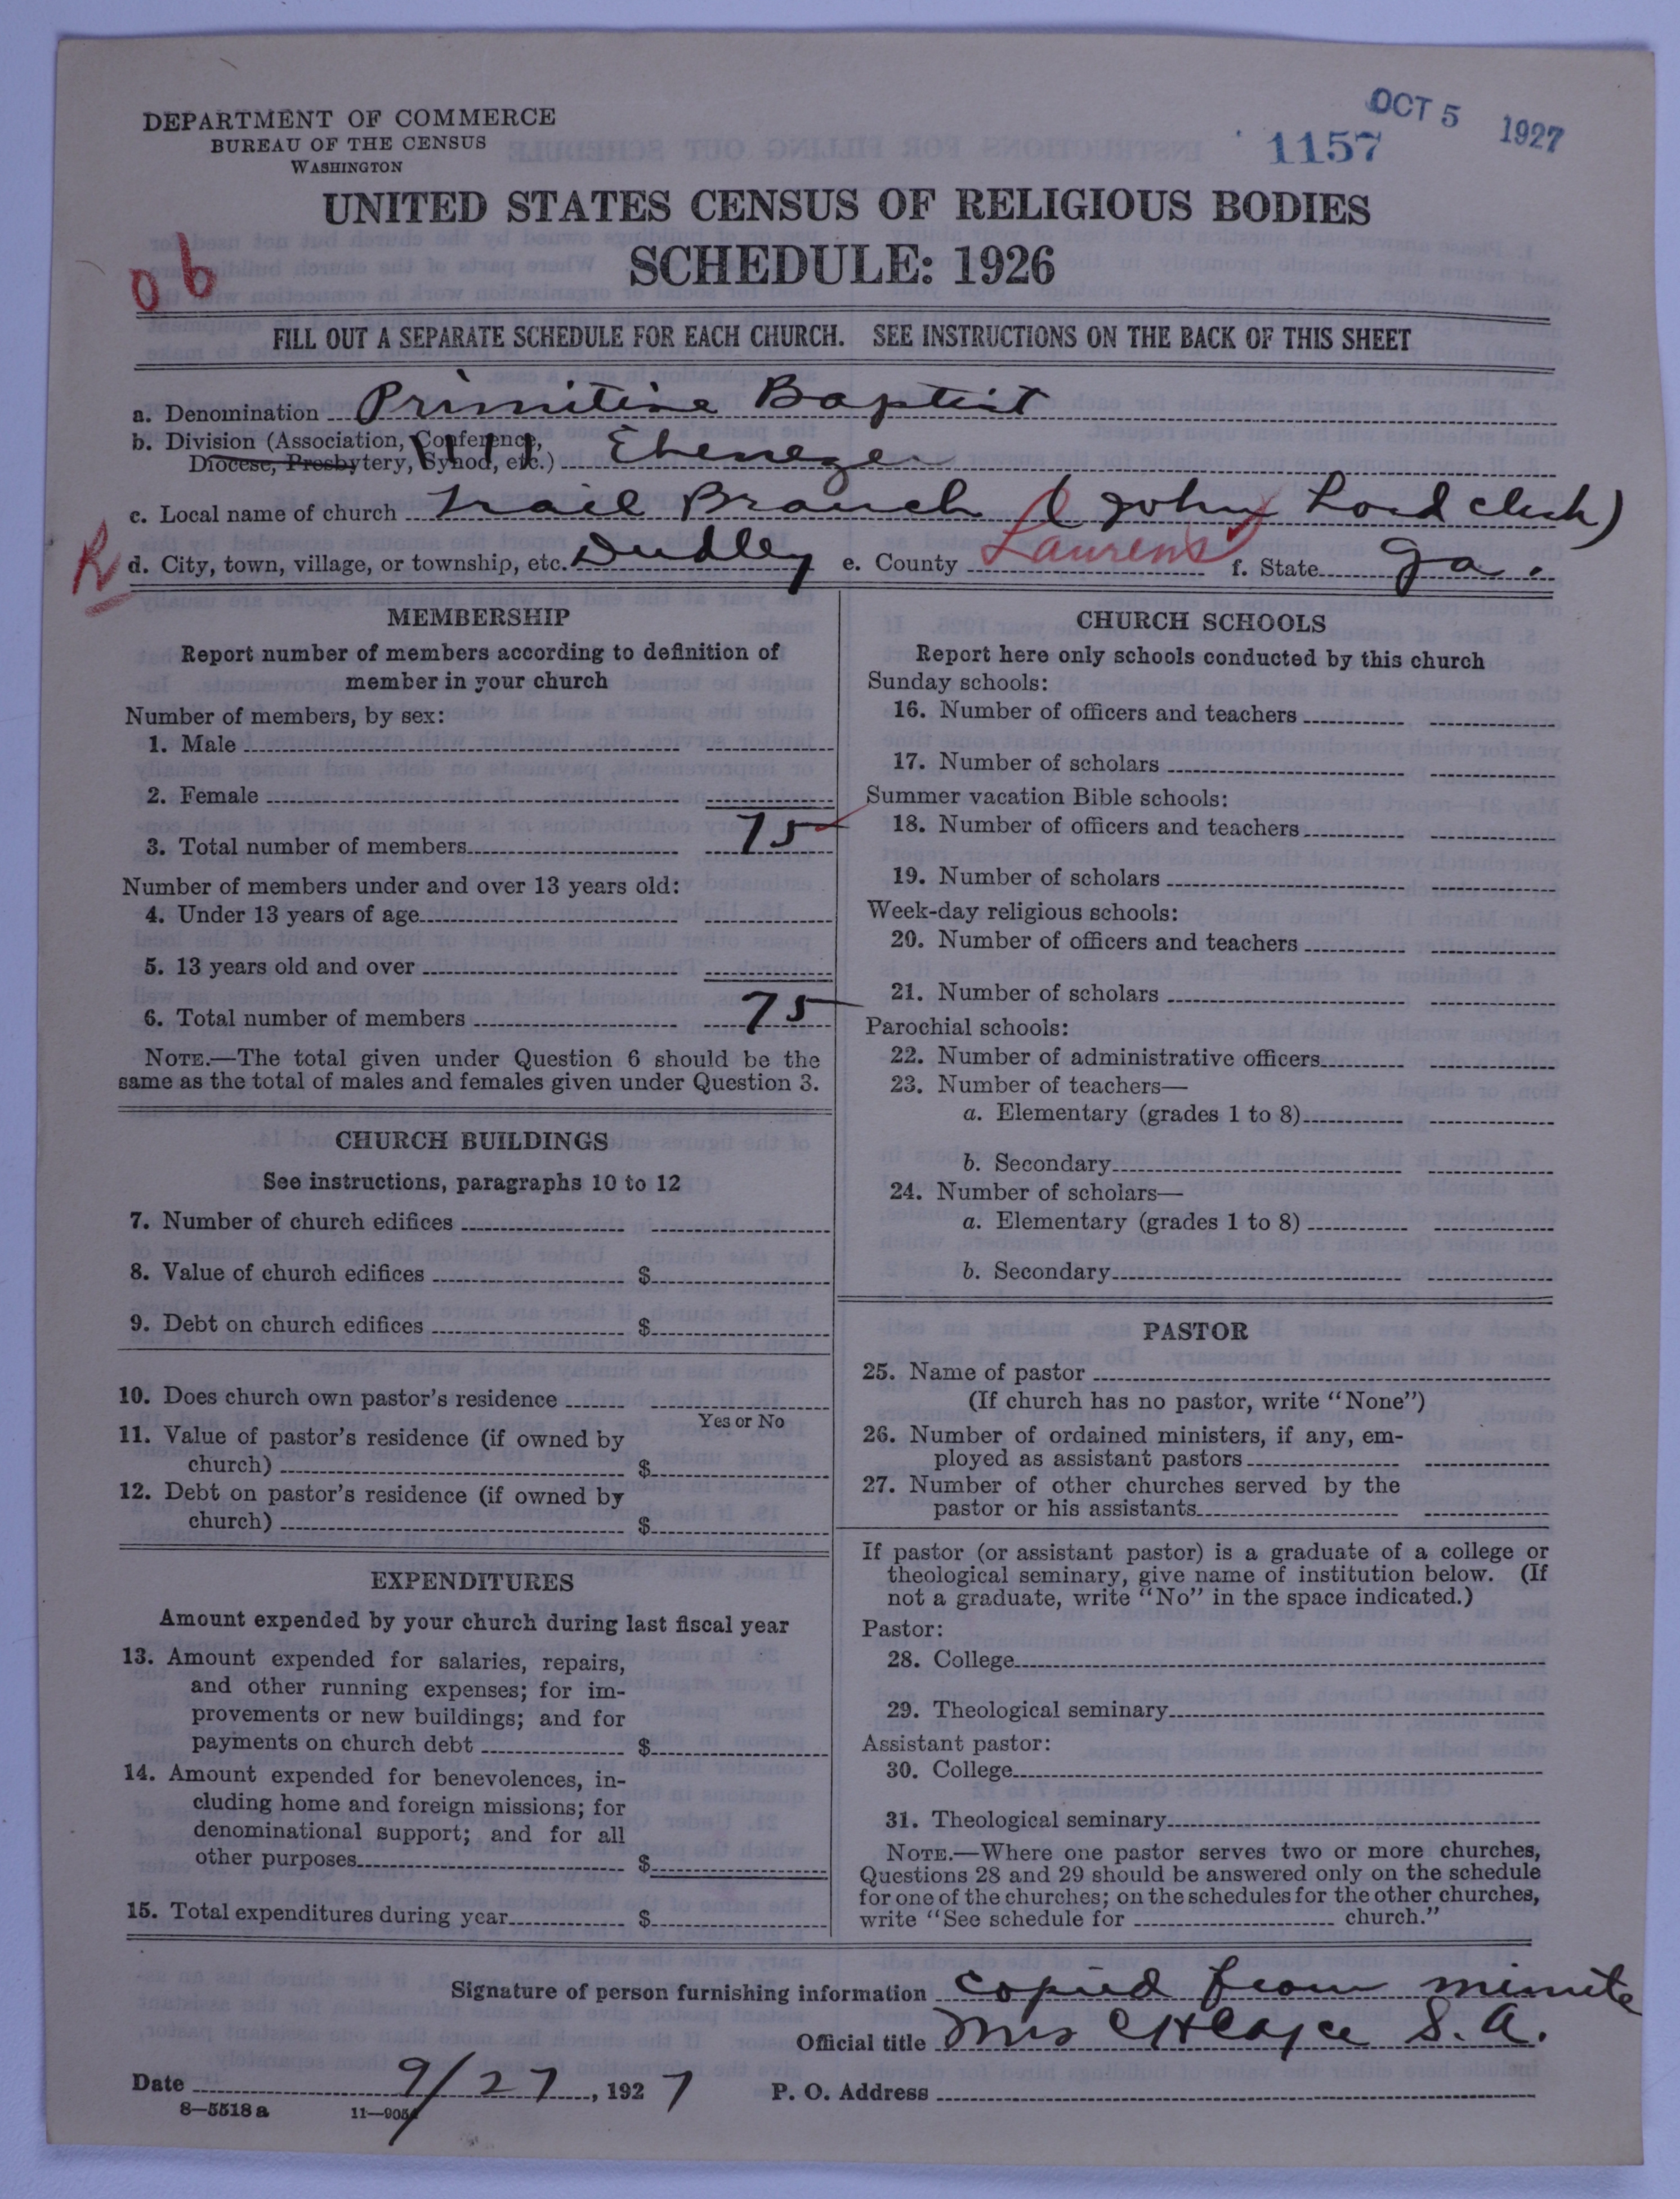 DEPARTMENT OF COMMERCE
BUREAU OF THE CENSUS
WASHINGTON
OCT 5 1927
1157
UNITED STATES CENSUS OF RELIGIOUS BODIES
SCHEDULE: 1926
FILL OUT A SEPARATE SCHEDULE FOR EACH CHURCH. SEE INSTRUCTIONS ON THE BACK OF THIS SHEET
a. Denomination Primitive Baptist
b. Division (Association, Conference,
Diocese, Presbytery, Synod, etc.) Ebenezer
c. Local name of church Trail Branch (John Lord clerk)
R
d. City, town, village, or township, etc. Dudley e. County Laurens f. State Ga.
MEMBERSHIP
Report number of members according to definition of
member in your church
Number of members, by sex:
1. Male
2. Female
3. Total number of members 75
Number of members under and over 13 years old:
4. Under 13 years of age
5. 13 years old and over
6. Total number of members 75
NOTE.—The total given under Question 6 should be the
same as the total of males and females given under Question 3.
CHURCH BUILDINGS
See instructions, paragraphs 10 to 12
7. Number of church edifices
8. Value of church edifices $
9. Debt on church edifices $
10. Does church own pastor's residence
Yes or No
11. Value of pastor's residence (if owned by
church) $
12. Debt on pastor's residence (if owned by
church) $
EXPENDITURES
Amount expended by your church during last fiscal year
13. Amount expended for salaries, repairs,
and other running expenses; for im-
provements or new buildings; and for
payments on church debt $
14. Amount expended for benevolences, in-
cluding home and foreign missions; for
denominational support; and for all
other purposes $
15. Total expenditures during year $
CHURCH SCHOOLS
Report here only schools conducted by this church
Sunday schools:
16. Number of officers and teachers
17. Number of scholars
Summer vacation Bible schools:
18. Number of officers and teachers
19. Number of scholars
Week-day religious schools:
20. Number of officers and teachers
21. Number of scholars
Parochial schools:
22. Number of administrative officers
23. Number of teachers—
a. Elementary (grades 1 to 8)
b. Secondary
24. Number of scholars—
a. Elementary (grades 1 to 8)
b. Secondary
PASTOR
25. Name of pastor
(If church has no pastor, write "None")
26. Number of ordained ministers, if any, em-
ployed as assistant pastors
27. Number of other churches served by the
pastor or his assistants
If pastor (or assistant pastor) is a graduate of a college or
theological seminary, give name of institution below. (If
not a graduate, write "No" in the space indicated.)
Pastor:
28. College
29. Theological seminary
Assistant pastor:
30. College
31. Theological seminary
NOTE.—Where one pastor serves two or more churches,
Questions 28 and 29 should be answered only on the schedule
for one of the churches; on the schedules for the other churches,
write "See schedule for church."
Signature of person furnishing information copied from minute
Official title Mrs S. A.
Date 9/27, 1927 P. O. Address
8—5518 a